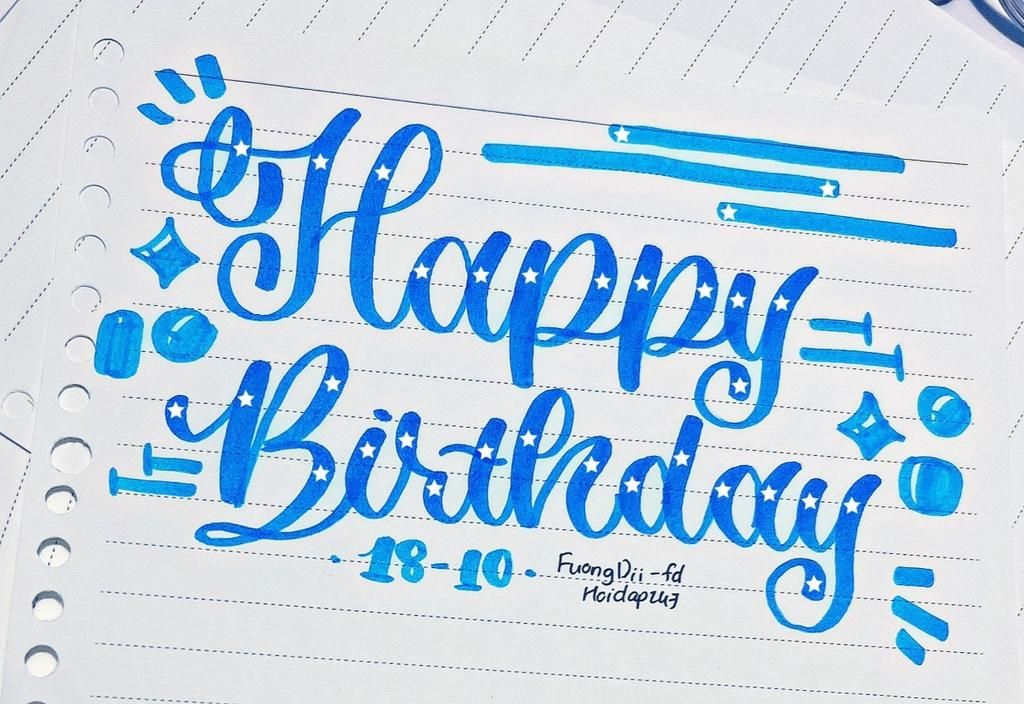 Happy
Birthday
·18-10·
FuongDii-fd
Hoidap247